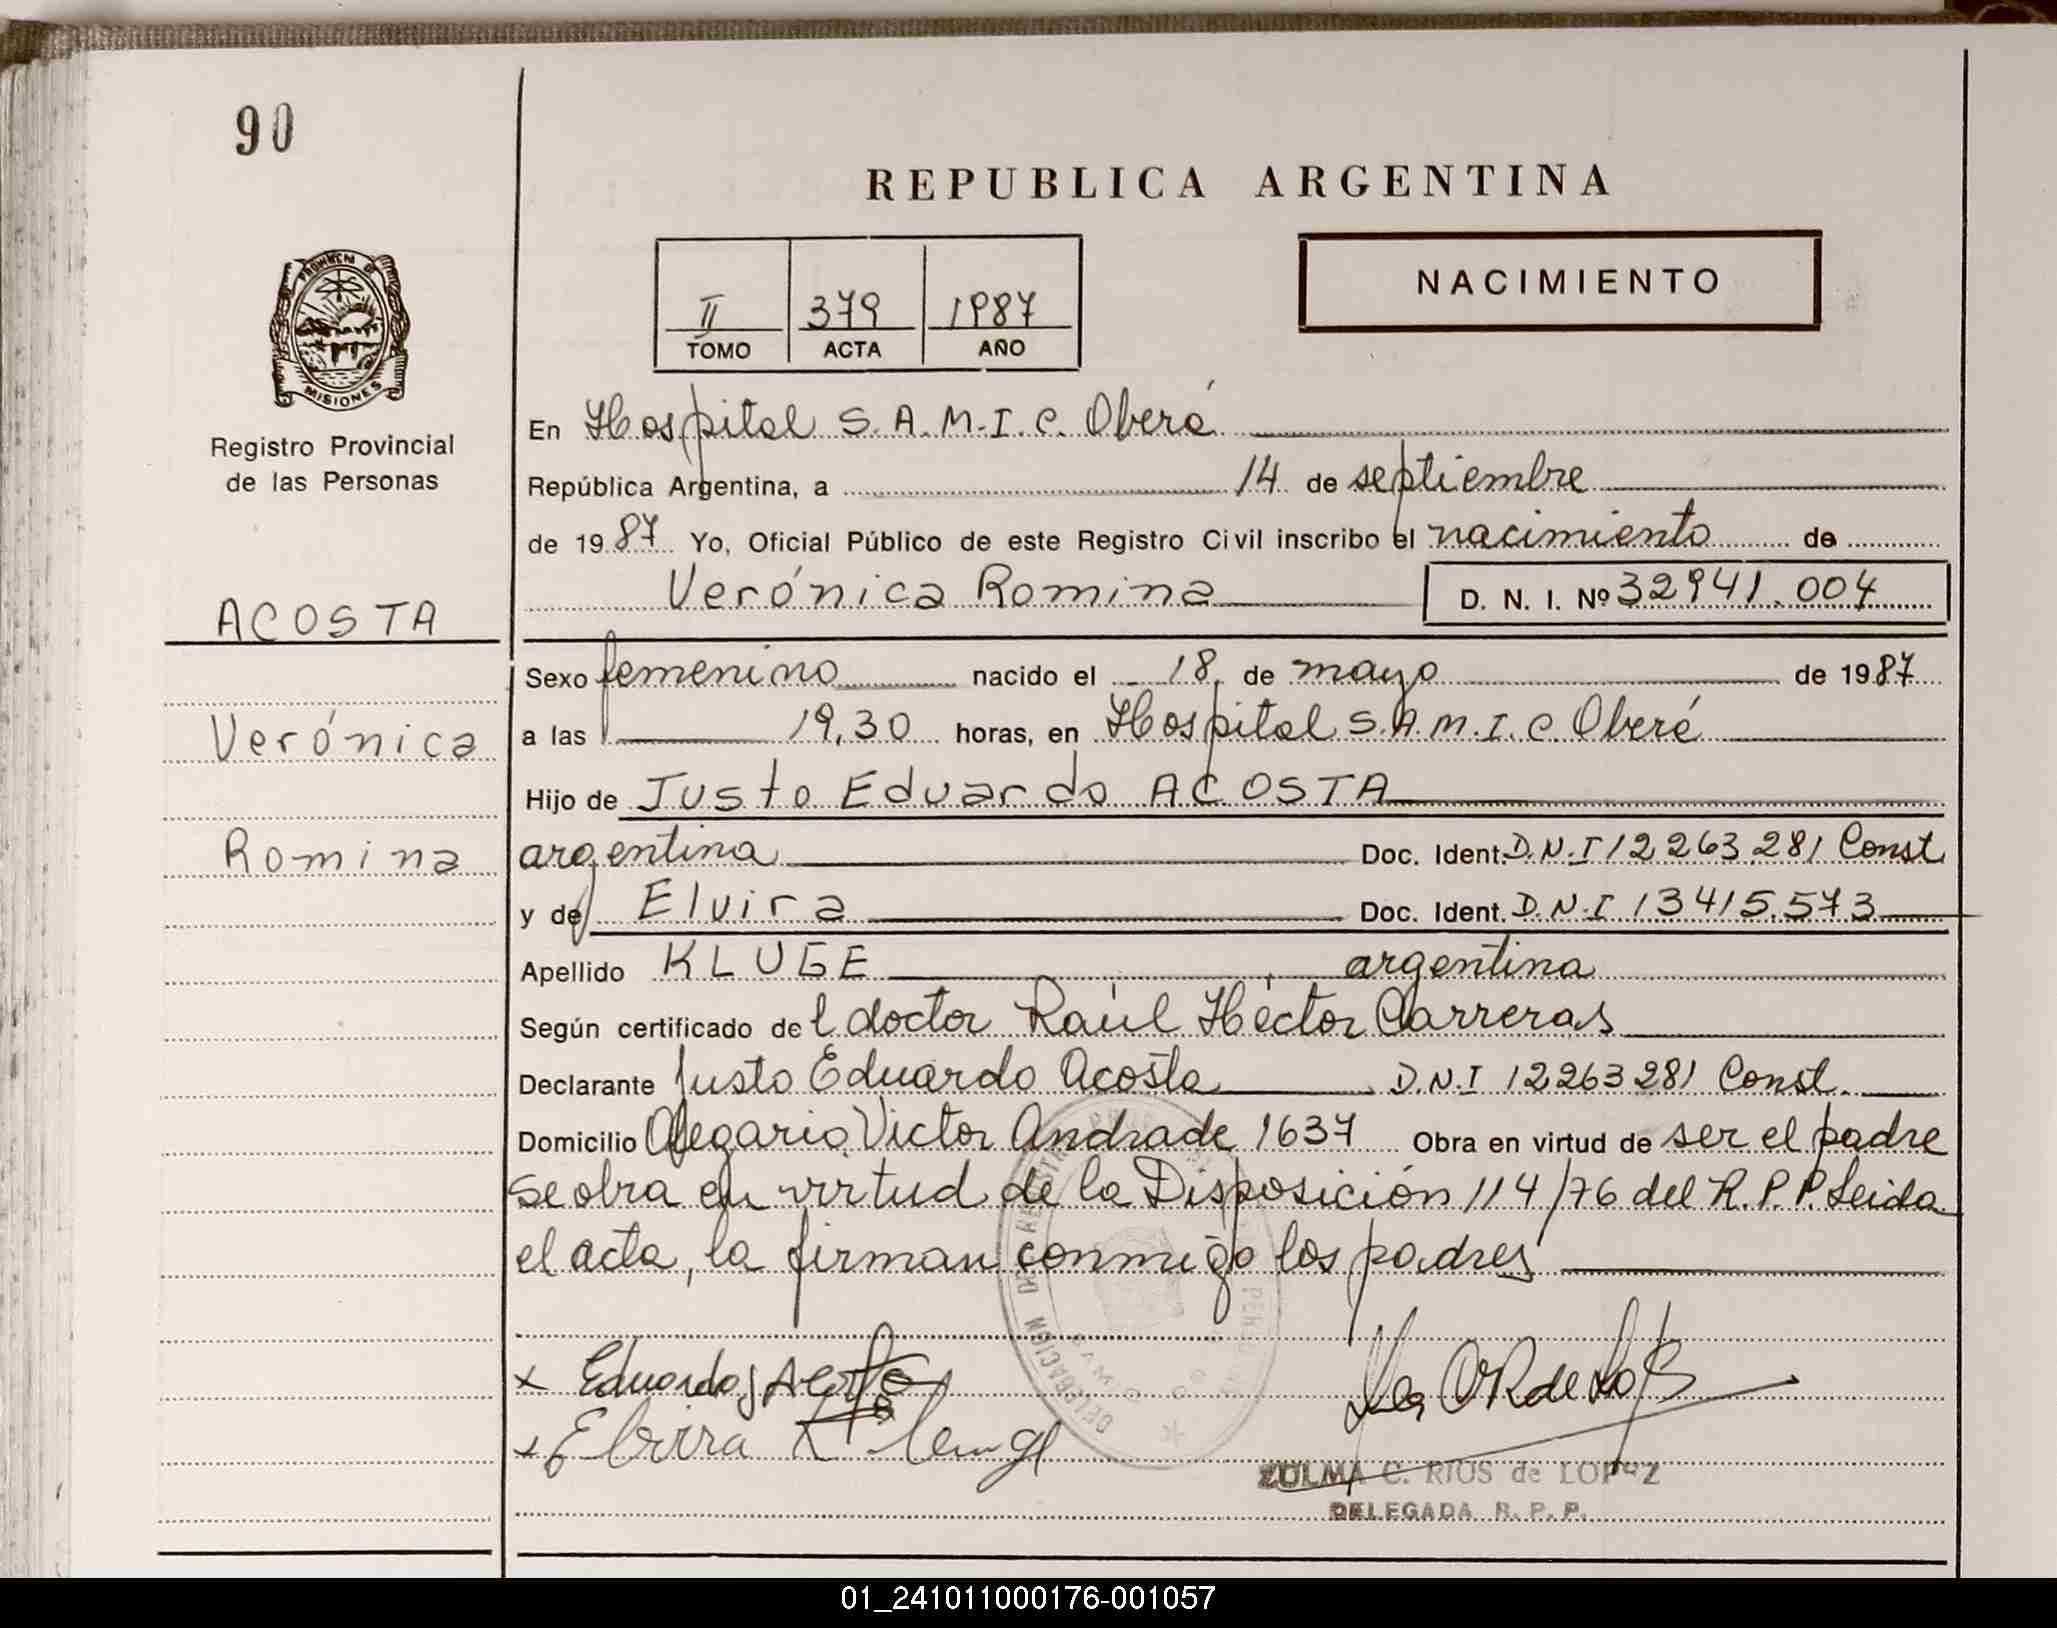 90
REPUBLICA ARGENTINA
NACIMIENTO
II 379 1987
TOMO ACTA AÑO
PROVINCIA DE MISIONES
Registro Provincial
de las Personas
En Hospital S.A.M.I.C. Oberá
República Argentina, a 14 de septiembre
de 1987 Yo, Oficial Público de este Registro Civil inscribo el nacimiento de
Verónica Romina D. N. I. Nº 32941.004
ACOSTA
Verónica
Romina
Sexo femenino nacido el 18 de mayo de 1987
a las 19,30 horas, en Hospital S.A.M.I.C Oberá
Hijo de Justo Eduardo ACOSTA
argentina Doc. Ident. D.N.I 12263.281 Const
y de Elvira Doc. Ident. D.N.I 13415.573
Apellido KLUGE argentina
Según certificado del doctor Raúl Héctor Carreras
Declarante Justo Eduardo Acosta D.N.I 12263281 Const.
Domicilio Olegario Victor Andrade 1637 Obra en virtud de ser el padre
se obra en virtud de la Disposición 114/76 del R.P.P. Leida
el acta, la firman conmigo los padres
x Eduardo J Acosta
x Elvira
ZULMA C. RIOS de LOPEZ
DELEGADA R. P. P.
01_241011000176-001057